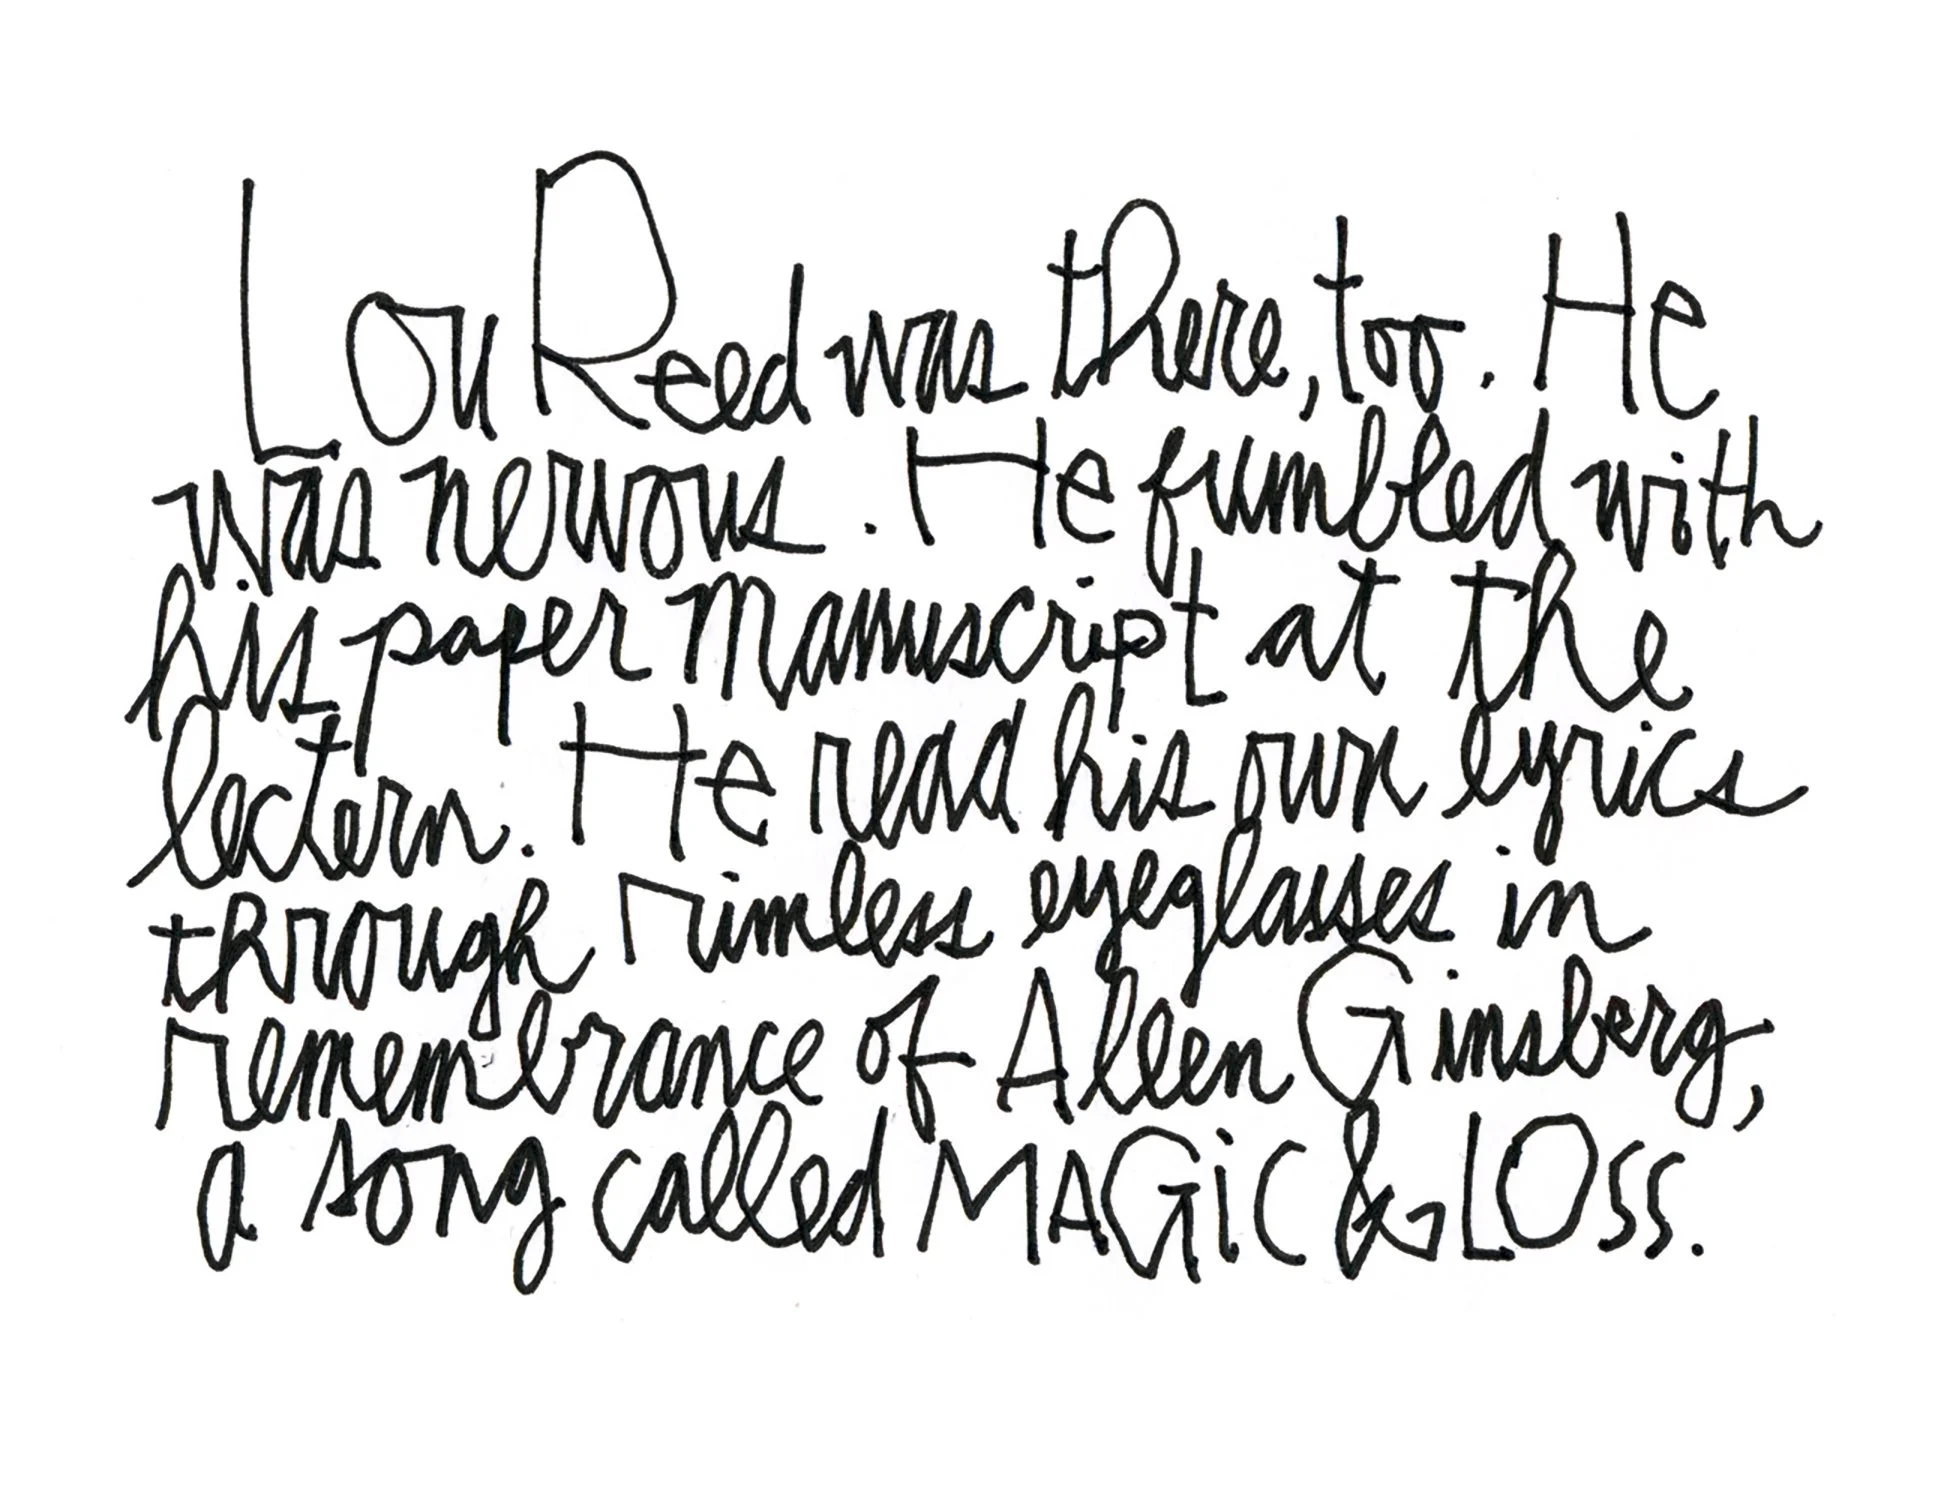 Lou Reed was there, too. He
was nervous. He fumbled with
his paper manuscript at the
lectern. He read his own lyrics
through rimless eyeglasses in
remembrance of Allen Ginsberg,
a song called MAGiC & LOSS.